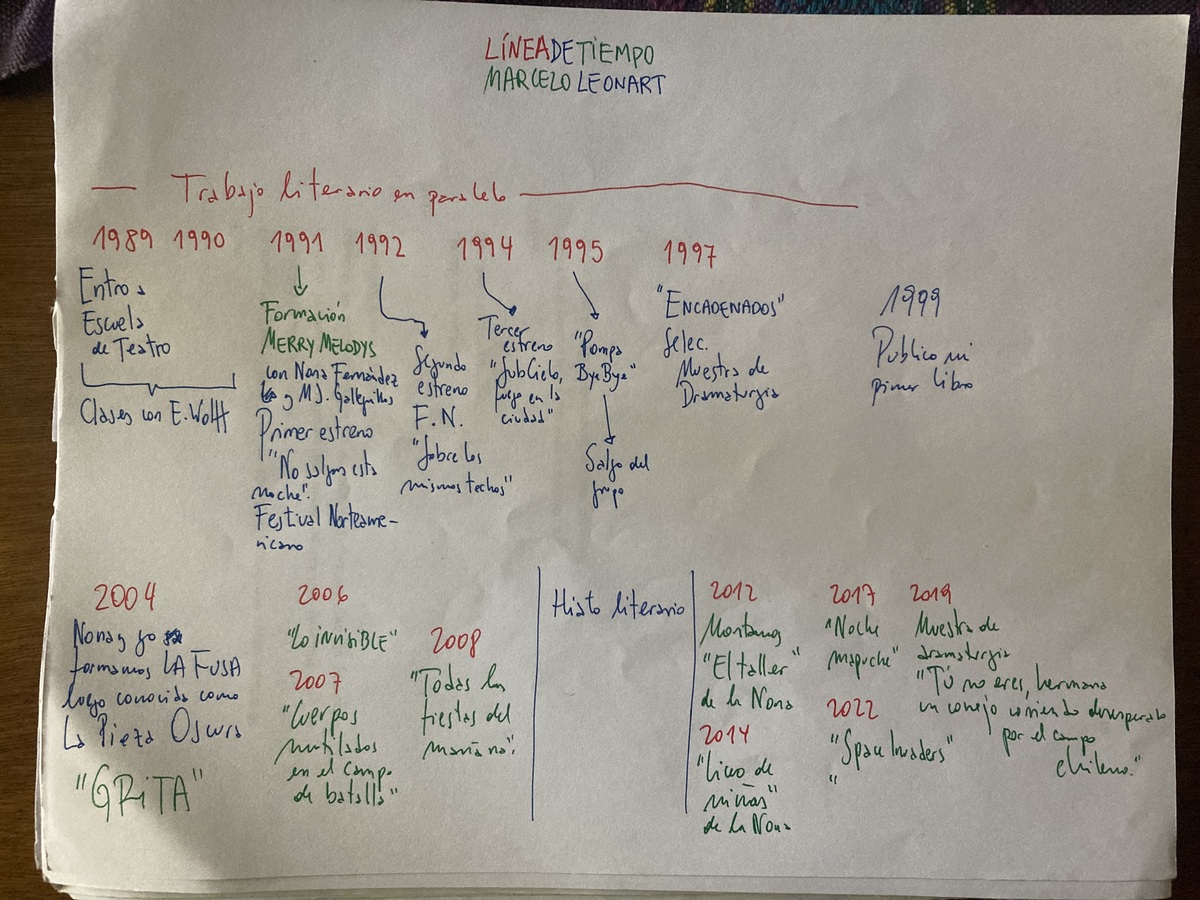 LÍNEA DE TIEMPO
MARCELO LEONART
Trabajo literario en paralelo
1989 1990 1991 1992 1994 1995 1997
Entro a
Escuela
de Teatro
Clases con E. Wolff
Formación
MERRY MELODYS
con Nona Fernández
y MJ. Galleguillos
Primer estreno
"No salgas esta
noche".
Festival Norteame-
ricano
Segundo
estreno
F.N.
"Sobre los
mismos techos"
Tercer
estreno
"SubCielo,
fuego en la
ciudad"
"Pompa
Bye Bye"
Salgo del
grupo
"ENCADENADOS"
Selec.
Muestra de
Dramaturgia
1999
Publico mi
primer libro
2004
Nona y yo
formamos LA FUSA
luego conocida como
La Pieza Oscura
"GRITA"
2006
"Lo invisible"
2007
"Cuerpos
mutilados
en el campo
de batalla"
2008
"Todas las
fiestas del
mañana".
Hiato literario
2012
Montamos
"El taller"
de la Nona
2014
"Liceo de
niñas"
de la Nona
2017
"Noche
mapuche"
2022
"Space Invaders"
"
2019
Muestra de
dramaturgia
"Tú no eres, hermana
un conejo corriendo desesperado
por el campo
chileno."